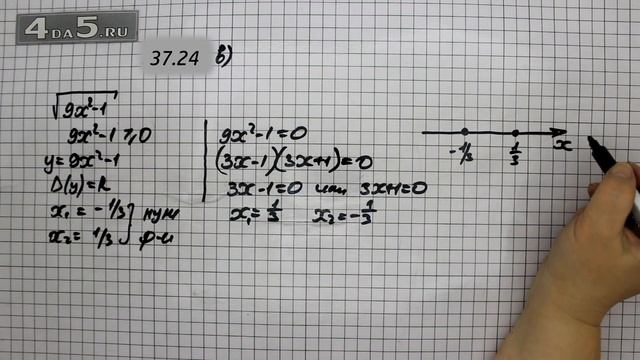 4DA5.RU
37.24 в)
√9x²-1
9x²-1 ≥ 0
y = 9x²-1
D(y) = R
x₁ = -1/3
x₂ = 1/3
нули
ф-и
9x²-1=0
(3x-1)(3x+1)=0
3x-1=0 или 3x+1=0
x₁ = 1/3 x₂ = -1/3
-1/3 1/3 x